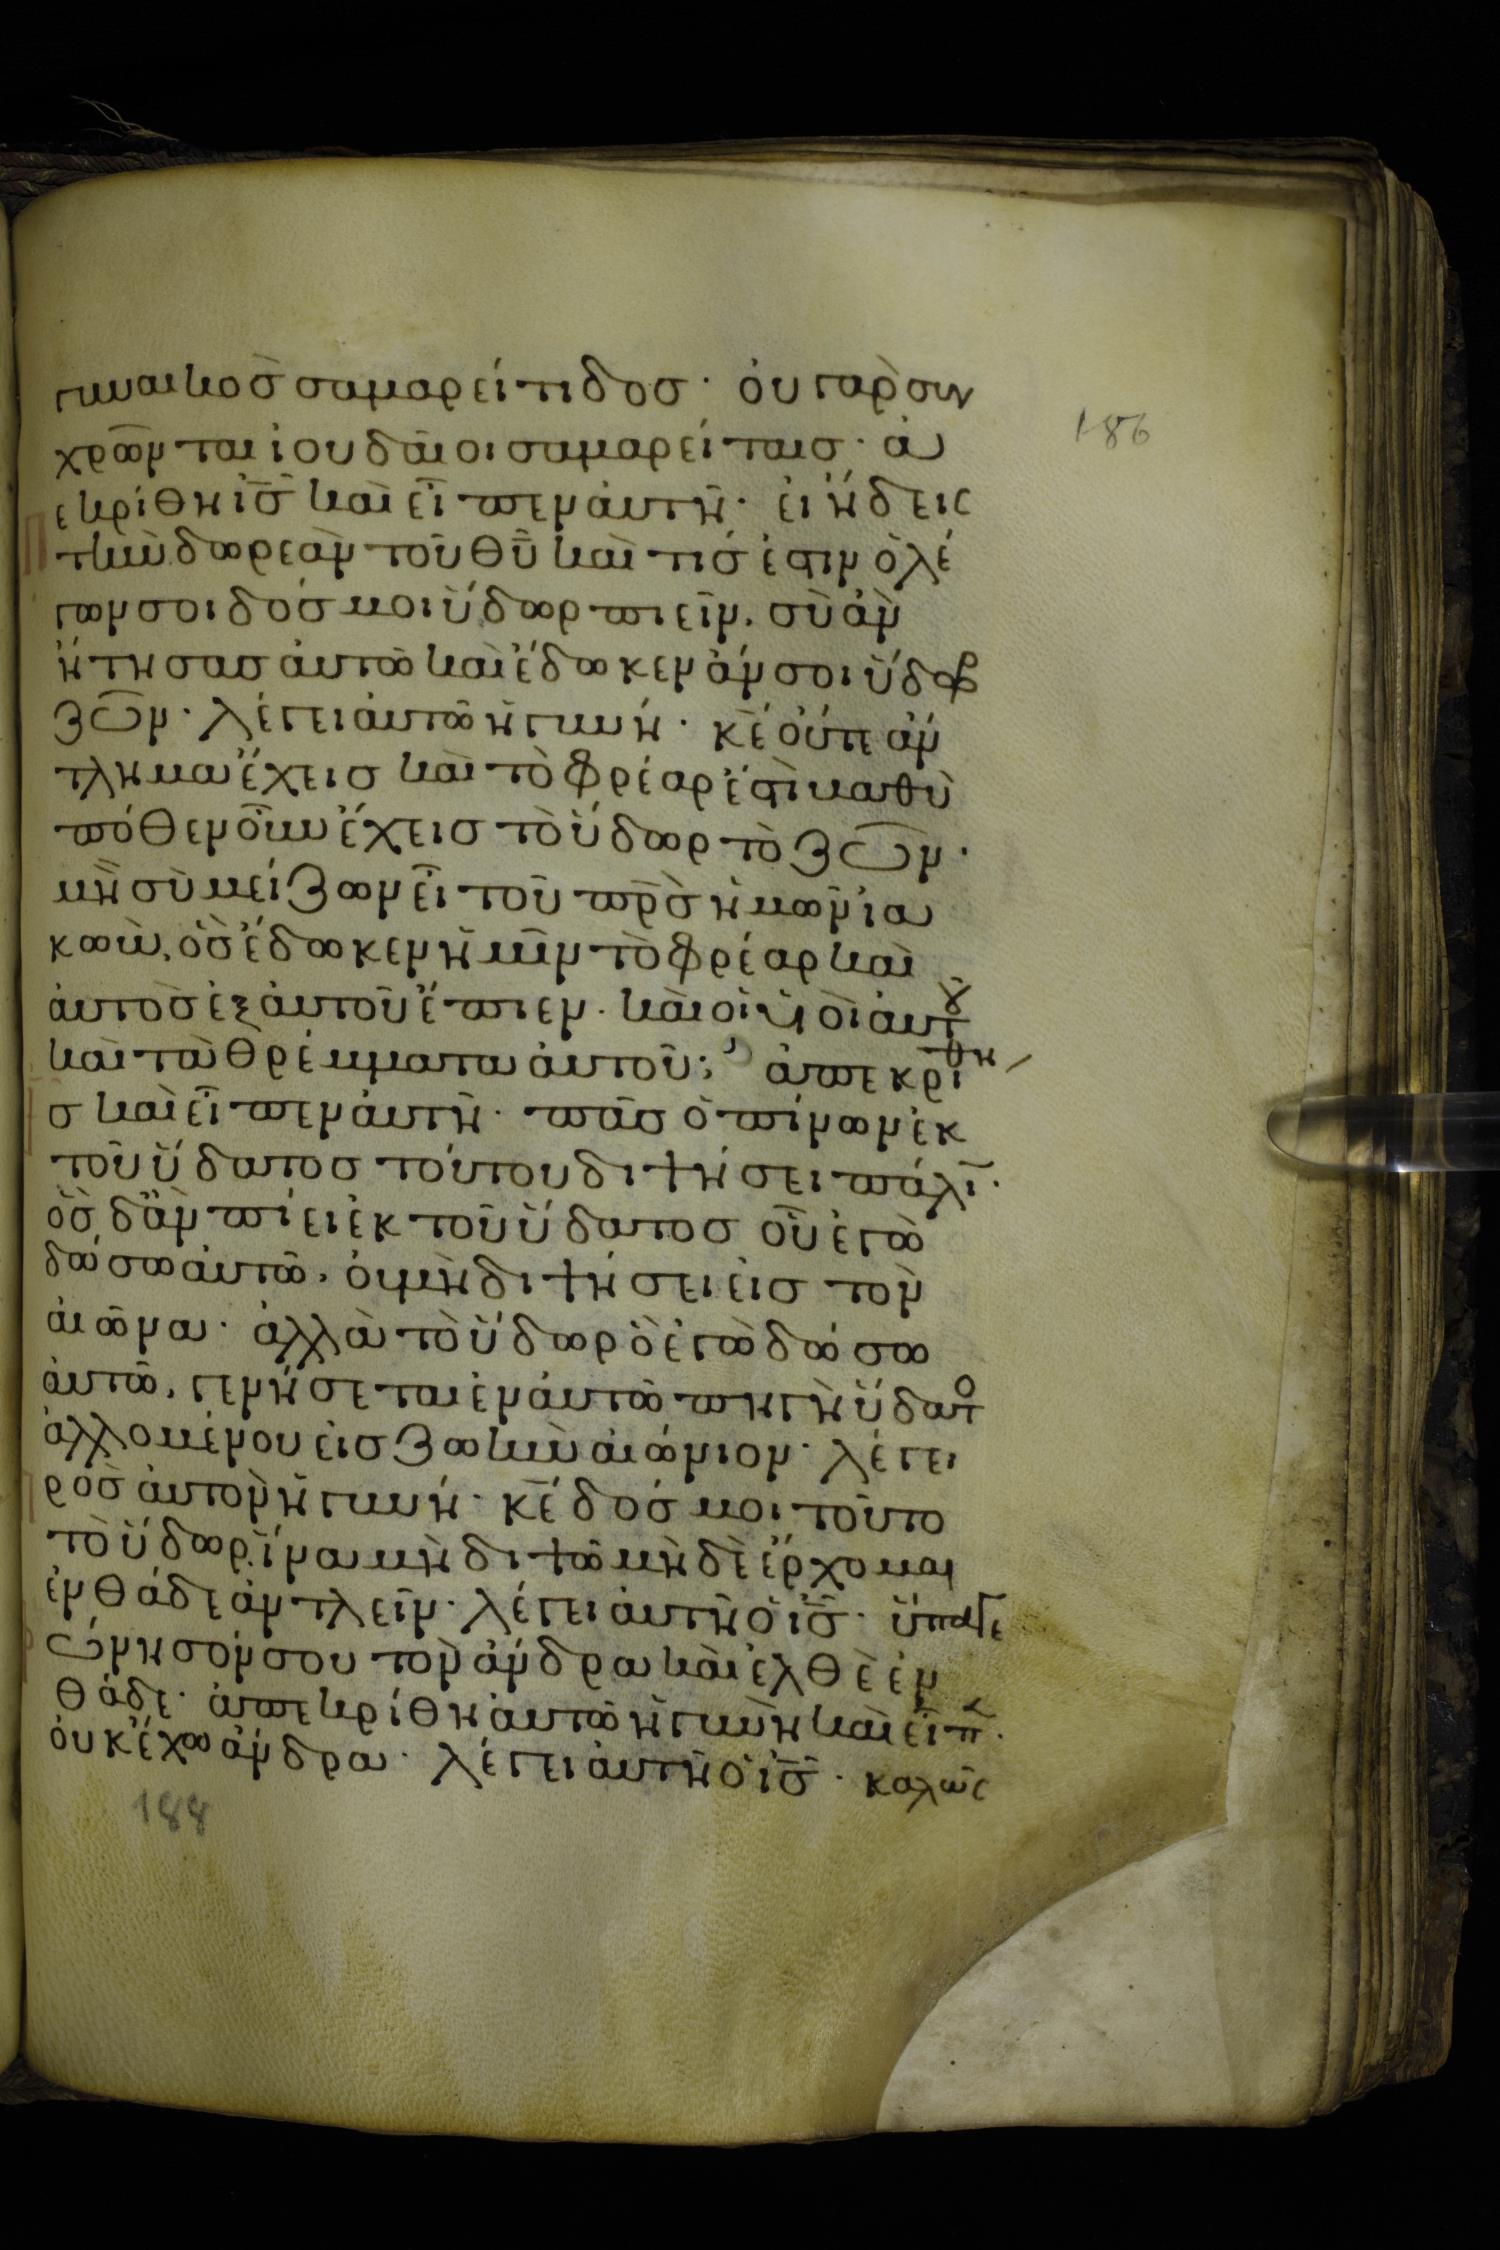 γυναικὸς σαμαρείτιδος· ὀυ γαρ συν
186
χρῶνται ἰουδᾶιοι σαμαρείταις· ἀ
εκρίθη ις̅ καὶ εῖπεν ἀυτῆ· ἐι ἤδεις
τὴν δωρεὰν τοῦ θυ̅ καὶ τίς ἐστιν ὁ λέ
γων σοι δός μοι ὕδωρ πιεῖν. σὺ ἀν
ἤτησας ἀυτῶ καὶ ἔδωκεν ἄν σοι ὕδωρ
ζῶν· λέγει ἀυτῶ ἡ γυνή· κε̅ ὀύτε ἄν
τλημα ἔχεις καὶ τὸ φρέαρ ἐστὶ βαθὺ
πόθεν οῦν ἔχεις τὸ ὕδωρ τὸ ζῶν·
μὴ σὺ μείζων εῖ τοῦ πρ̅ς ἡμῶν ἰα
κώβ, ὁς ἔδωκεν ἡμῖν τὸ φρέαρ καὶ
ἀυτὸς ἐξ ἀυτοῦ ἔπιεν. καὶ οἱ ὑϊοὶ ἀυτοῦ
καὶ τὰ θρέμματα ἀυτοῦ; ἀπεκρίθη
ις̅ καὶ εῖπεν ἀυτῆ· πᾶς ὁ πίνων ἐκ
τοῦ ὕδατος τούτου διψήσει πάλι̅·
ὃς δ' ἂν πίει ἐκ τοῦ ὕδατος οῦ ἐγὼ
δώσω ἀυτῶ, ὀυ μὴ διψήσει ἐις τὸν
ἀιῶνα· ἀλλὰ τὸ ὕδωρ ὃ ἐγὼ δώσω
ἀυτῶ, γενήσεται ἐν ἀυτῶ πηγὴ ὕδατο
ἁλλομένου ἐις ζωὴν ἀιώνιον· λέγει
ρὸς ἀυτὸν ἡ γυνή· κε̅ δός μοι τοῦτο
τὸ ὕδωρ, ἵνα μὴ διψῶ μὴ δὲ ἔρχομαι
ἐνθάδε ἀντλεῖν· λέγει ἀυτῆ ὁ ις̅· ὕπαγε
φώνησόν σου τὸν ἄνδρα καὶ ἐλθὲ ἐν
θάδε· ἀπεκρίθη ἀυτῶ ἡ γυνὴ καὶ εῖπ̅·
ὀυκ ἔχω ἄνδρα· λέγει ἀυτῆ ὁ ις̅· καλῶς
188